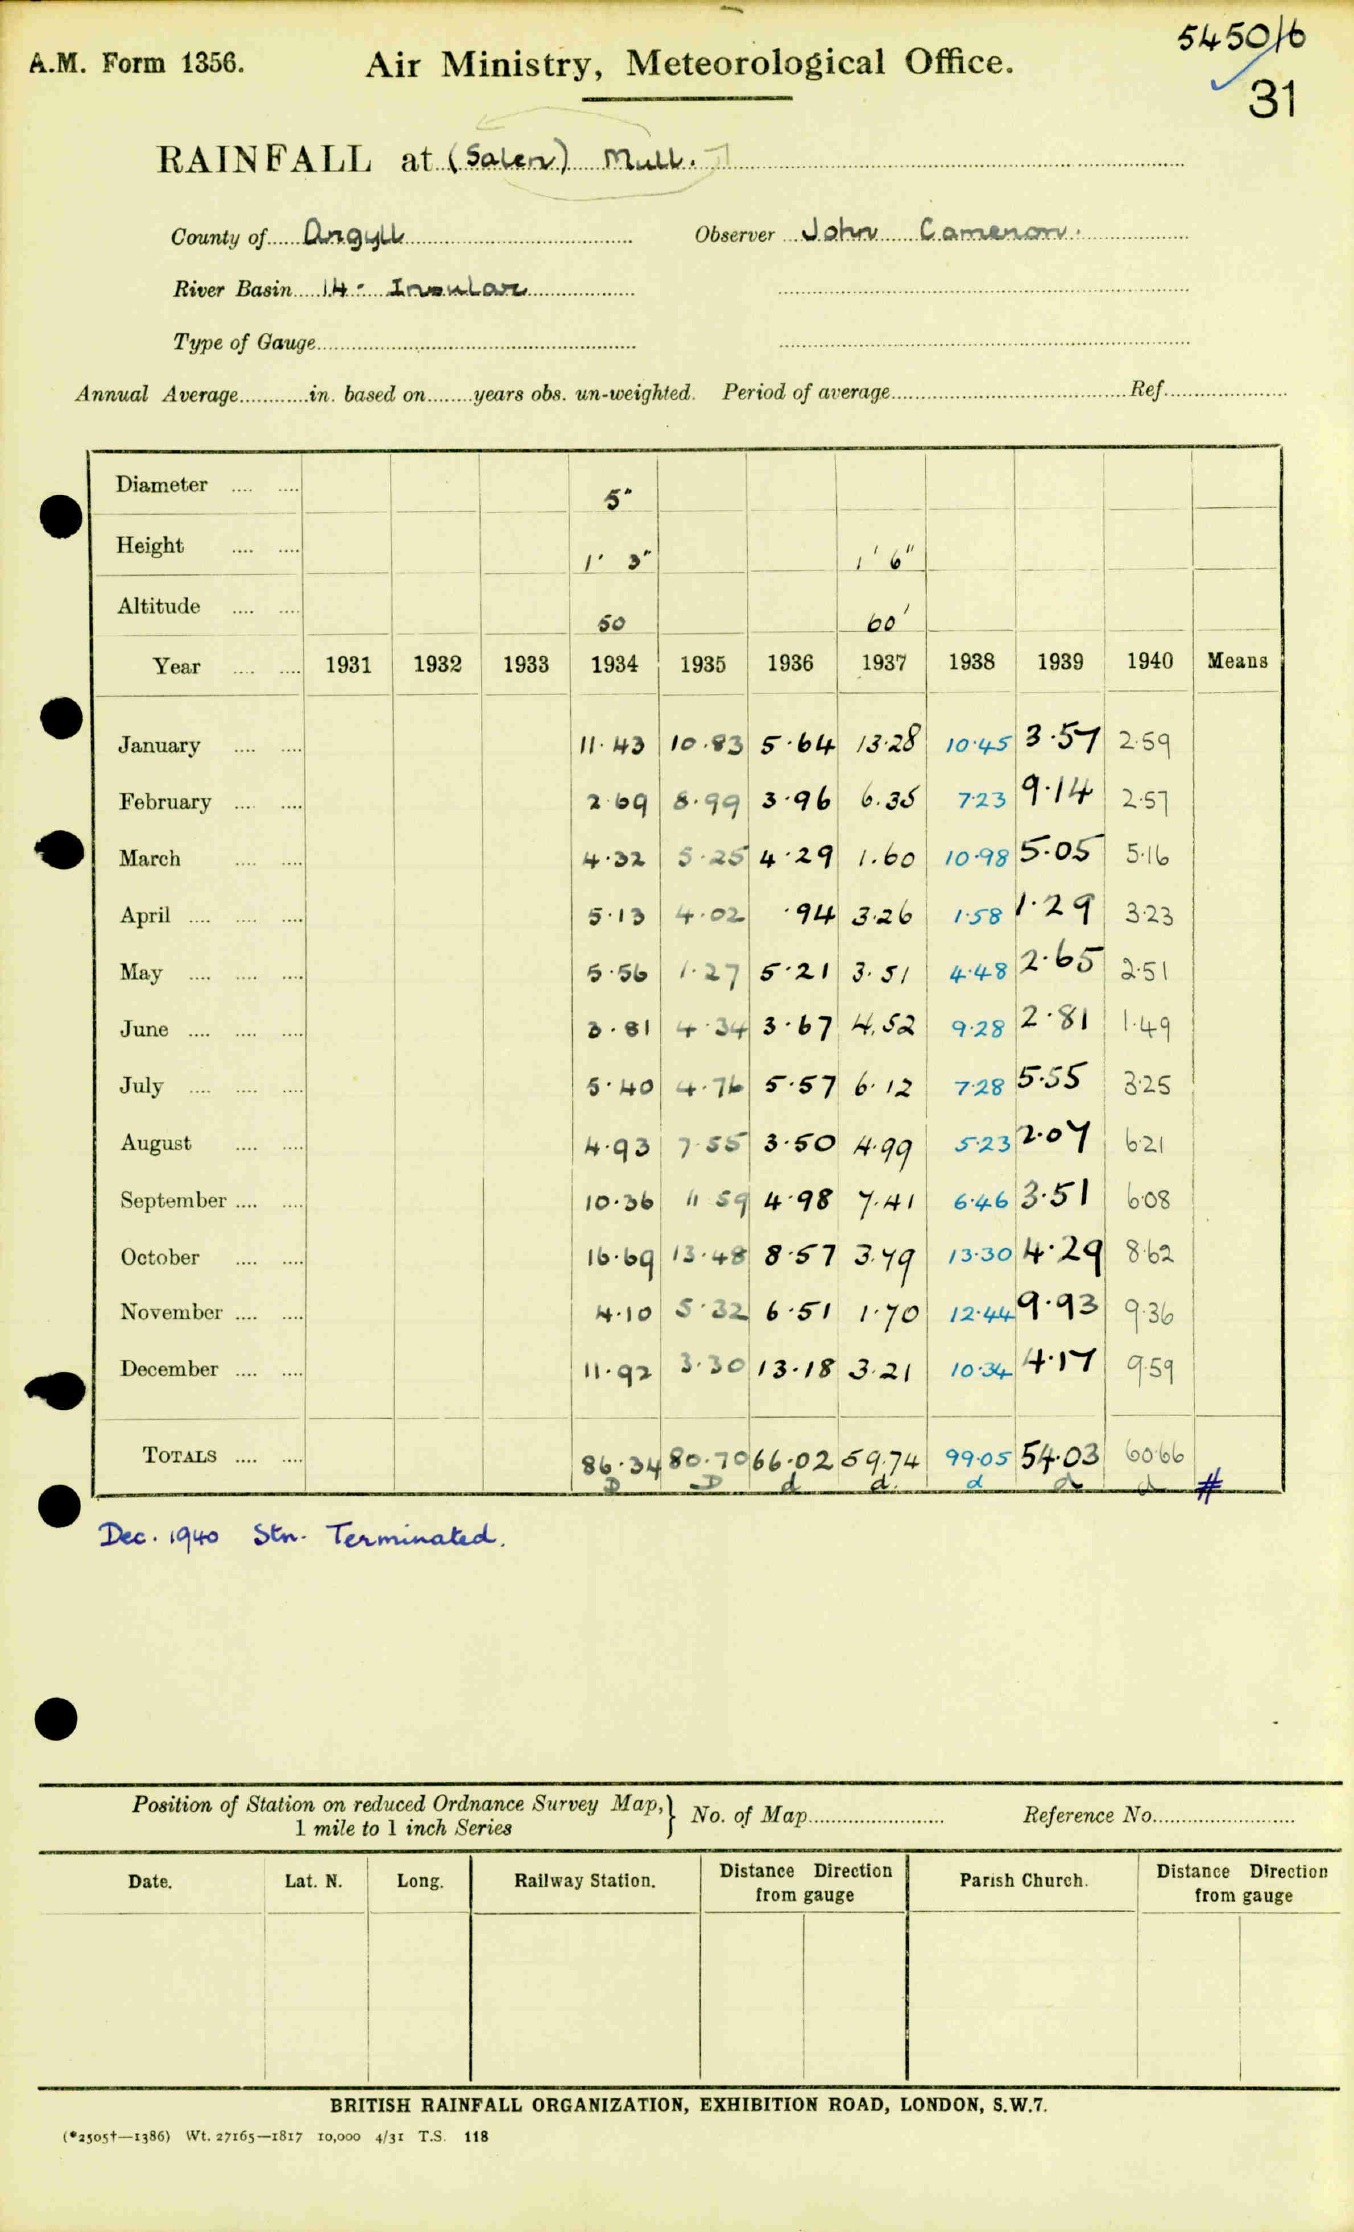 5450/6
A.M. Form 1356. Air Ministry, Meteorological Office.
31
RAINFALL at (Salen) Mull.
County of Argyll Observer John Cameron.
River Basin 14 - Insular
Type of Gauge
Annual Average in. based on years obs. un-weighted. Period of average Ref.
Diameter 5"
Height 1' 3" 1' 6"
Altitude 50 60'
Year 1931 1932 1933 1934 1935 1936 1937 1938 1939 1940 Means
January 11.43 10.83 5.64 13.28 10.45 3.57 2.59
February 2.69 8.99 3.96 6.35 7.23 9.14 2.57
March 4.32 5.25 4.29 1.60 10.98 5.05 5.16
April 5.13 4.02 .94 3.26 1.58 1.29 3.23
May 5.56 1.27 5.21 3.51 4.48 2.65 2.51
June 3.81 4.34 3.67 4.52 9.28 2.81 1.49
July 5.40 4.76 5.57 6.12 7.28 5.55 3.25
August 4.93 7.55 3.50 4.99 5.23 2.07 6.21
September 10.36 11.59 4.98 7.41 6.46 3.51 6.08
October 16.69 13.48 8.57 3.79 13.30 4.29 8.62
November 4.10 5.32 6.51 1.70 12.44 9.93 9.36
December 11.92 3.30 13.18 3.21 10.34 4.17 9.59
TOTALS 86.34 80.70 66.02 59.74 99.05 54.03 60.66
D D d d. d d d #
Dec. 1940 Stn. Terminated.
Position of Station on reduced Ordnance Survey Map,} No. of Map Reference No.
1 mile to 1 inch Series
Date. Lat. N. Long. Railway Station. Distance Direction from gauge Parish Church. Distance Direction from gauge
BRITISH RAINFALL ORGANIZATION, EXHIBITION ROAD, LONDON, S.W.7.
(*2505†—1386) Wt. 27165—1817 10,000 4/31 T.S. 118